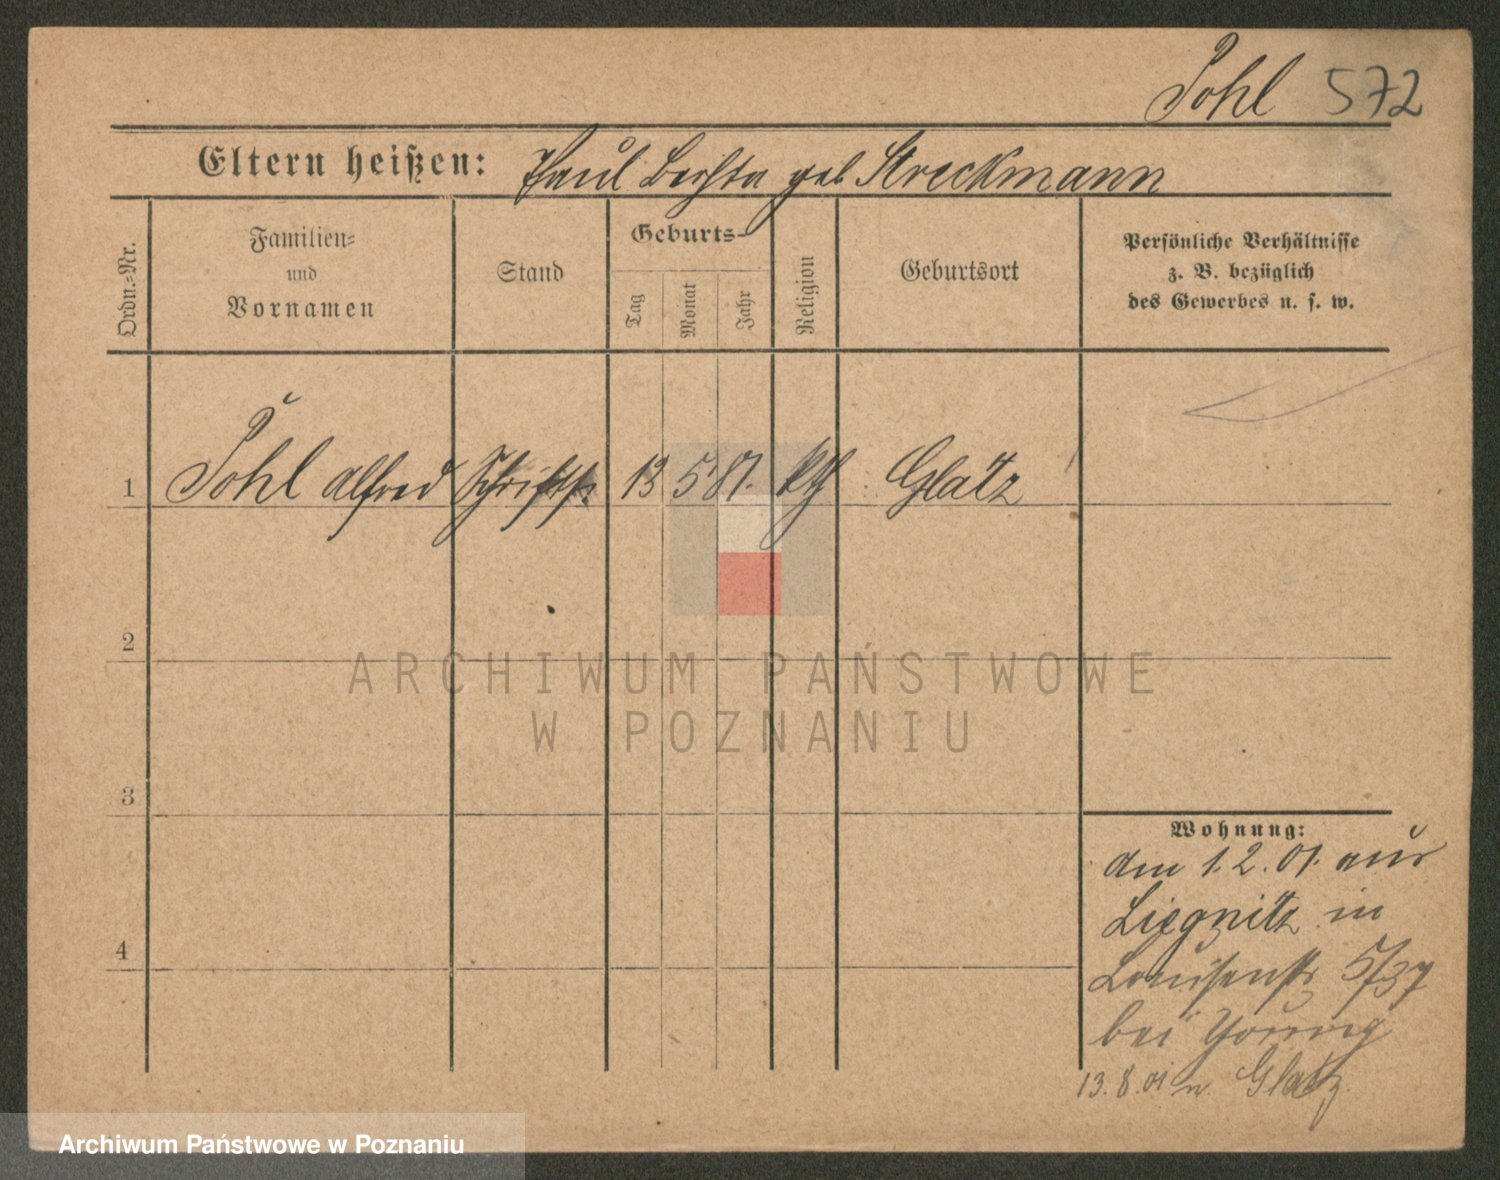 Pohl 572
Eltern heißen: Paul Bertha geb Streckmann
Ordn.=Nr.
Familien=
und
Vornamen
Stand
Geburts=
Tag
Monat
Jahr
Religion
Geburtsort
Persönliche Verhältnisse
z. B. bezüglich
des Gewerbes u. s. w.
1 Pohl Alfred 13 5 81. kth Glatz
2
ARCHIWUM PAŃSTWOWE
W POZNANIU
3
Wohnung:
am 1.2.01. aus
Liegnitz in
4
Louisenstr 5/37
bei
13.8.01 n. Glatz.
Archiwum Państwowe w Poznaniu